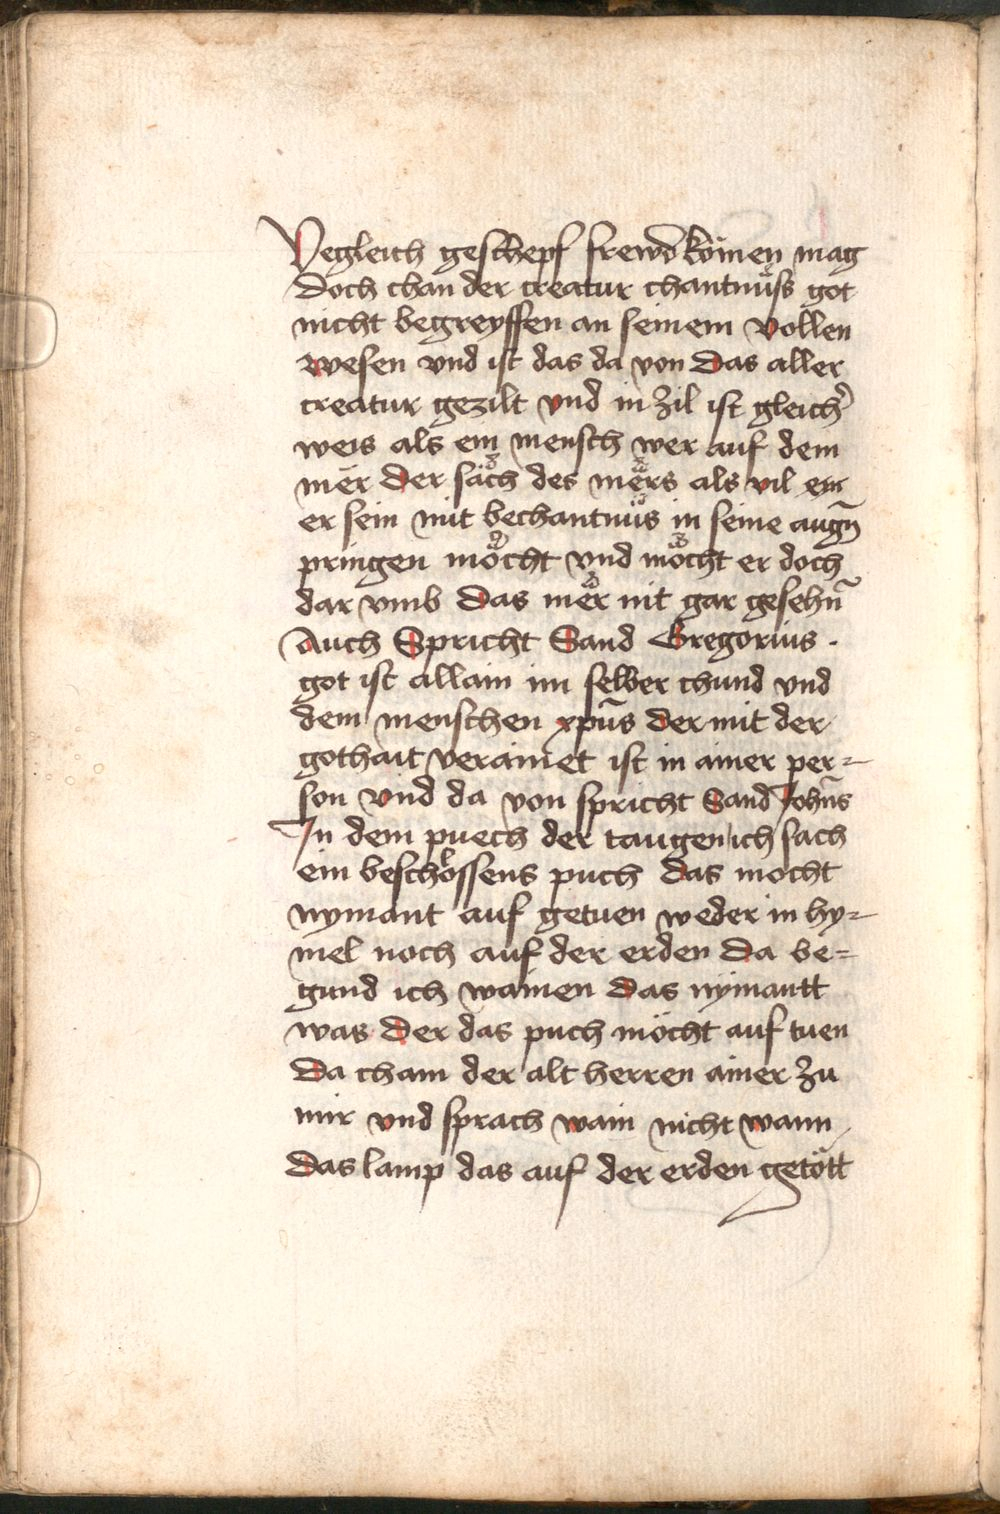 Yegleich geschepf frewd komen mag
Doch chan der creatur chantnüss got
nicht begreyffen an seinem vollen
wesen vnd ist das da von Das aller
creatur gezilt vnd in zil ist gleich̉
weis als ein mensch wer auf dem
mer Der säch des mers als vil ein
er sein mit bechantnüs in seine augn̄
pringen möcht vnd möcht er doch
dar vmb Das mer nit gar gesehn̄
Auch Spricht Sand Gregorius .
got ist allain im selber chund vnd
dem menschen xpūs Der mit der
gothait verainet ist in ainer per=
son vnd da von spricht Sand John̄s
In dem puech der taugen ich sach
ein beschlossens puch Das mocht
nymant auf getuen weder in hy=
mel noch auf der erden Da be=
gund ich wainen Das nÿmantt
was Der das puch möcht auf tuen
Da cham der alt herren ainer zu
mir vnd sprach wain nicht wann
Das lamp das auf der erden getött